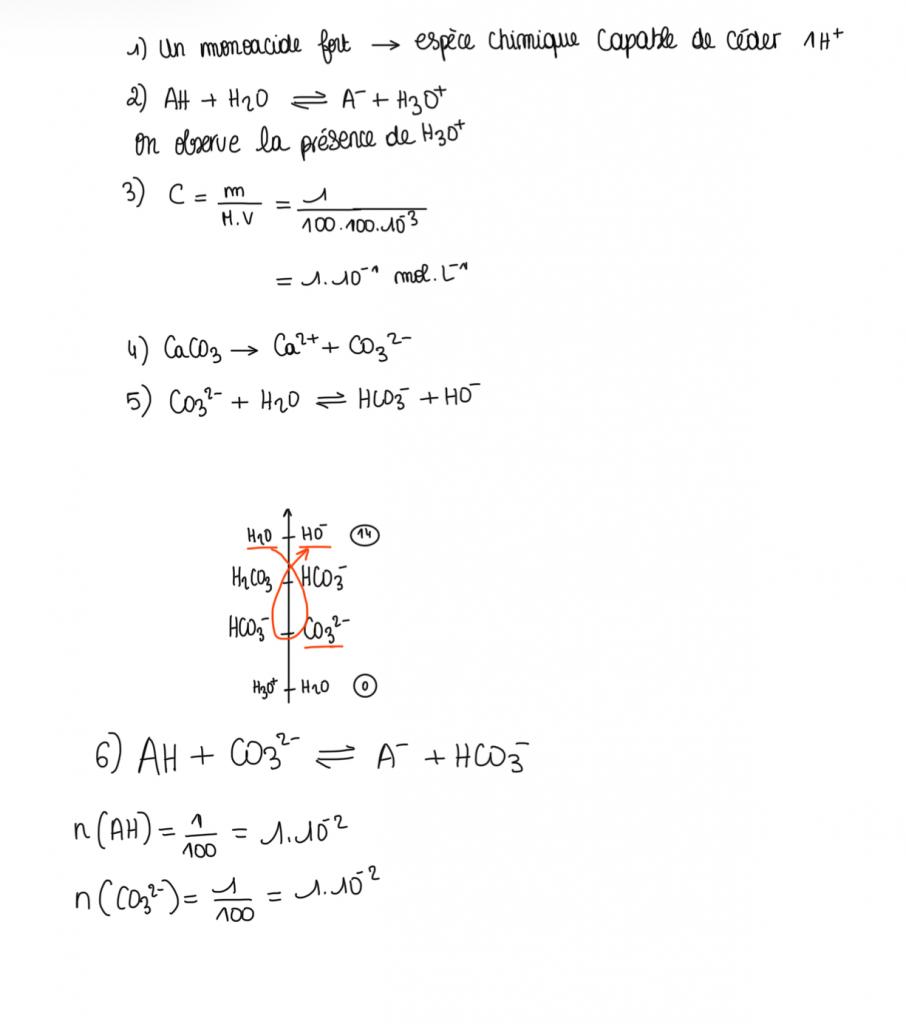 1) Un monoacide fort → espèce chimique capable de céder 1H⁺
2) AH + H₂O ⇌ A⁻ + H₃O⁺
On observe la présence de H₃O⁺
3) C = m/M.V = 1/100.100.10⁻³
= 1.10⁻¹ mol.L⁻¹
4) CaCO₃ → Ca²⁺ + CO₃²⁻
5) CO₃²⁻ + H₂O ⇌ HCO₃⁻ + HO⁻
H₂O HO⁻ 14
H₂CO₃ HCO₃⁻
HCO₃⁻ CO₃²⁻
H₃O⁺ H₂O 0
6) AH + CO₃²⁻ ⇌ A⁻ + HCO₃⁻
n(AH) = 1/100 = 1.10⁻²
n(CO₃²⁻) = 1/100 = 1.10⁻²